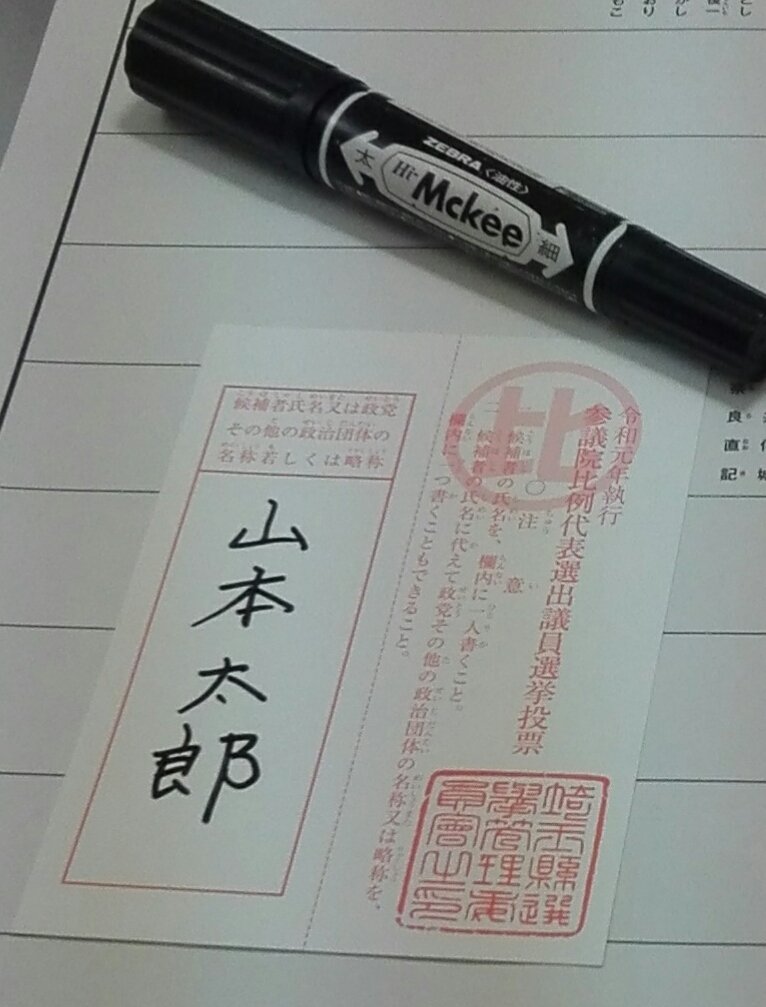 ZEBRA〈油性〉
太
Hi-Mckee
細
令和元年執行
参議院比例代表選出議員選挙投票
比
○注意
一 候補者の氏名を、欄内に一人書くこと。
二 候補者の氏名に代えて政党その他の政治団体の名称又は略称を、
欄内に一つ書くこともできること。
埼玉県選
挙管理委
員会之印
候補者氏名又は政党
その他の政治団体の
名称若しくは略称
山本太郎
良
直
記